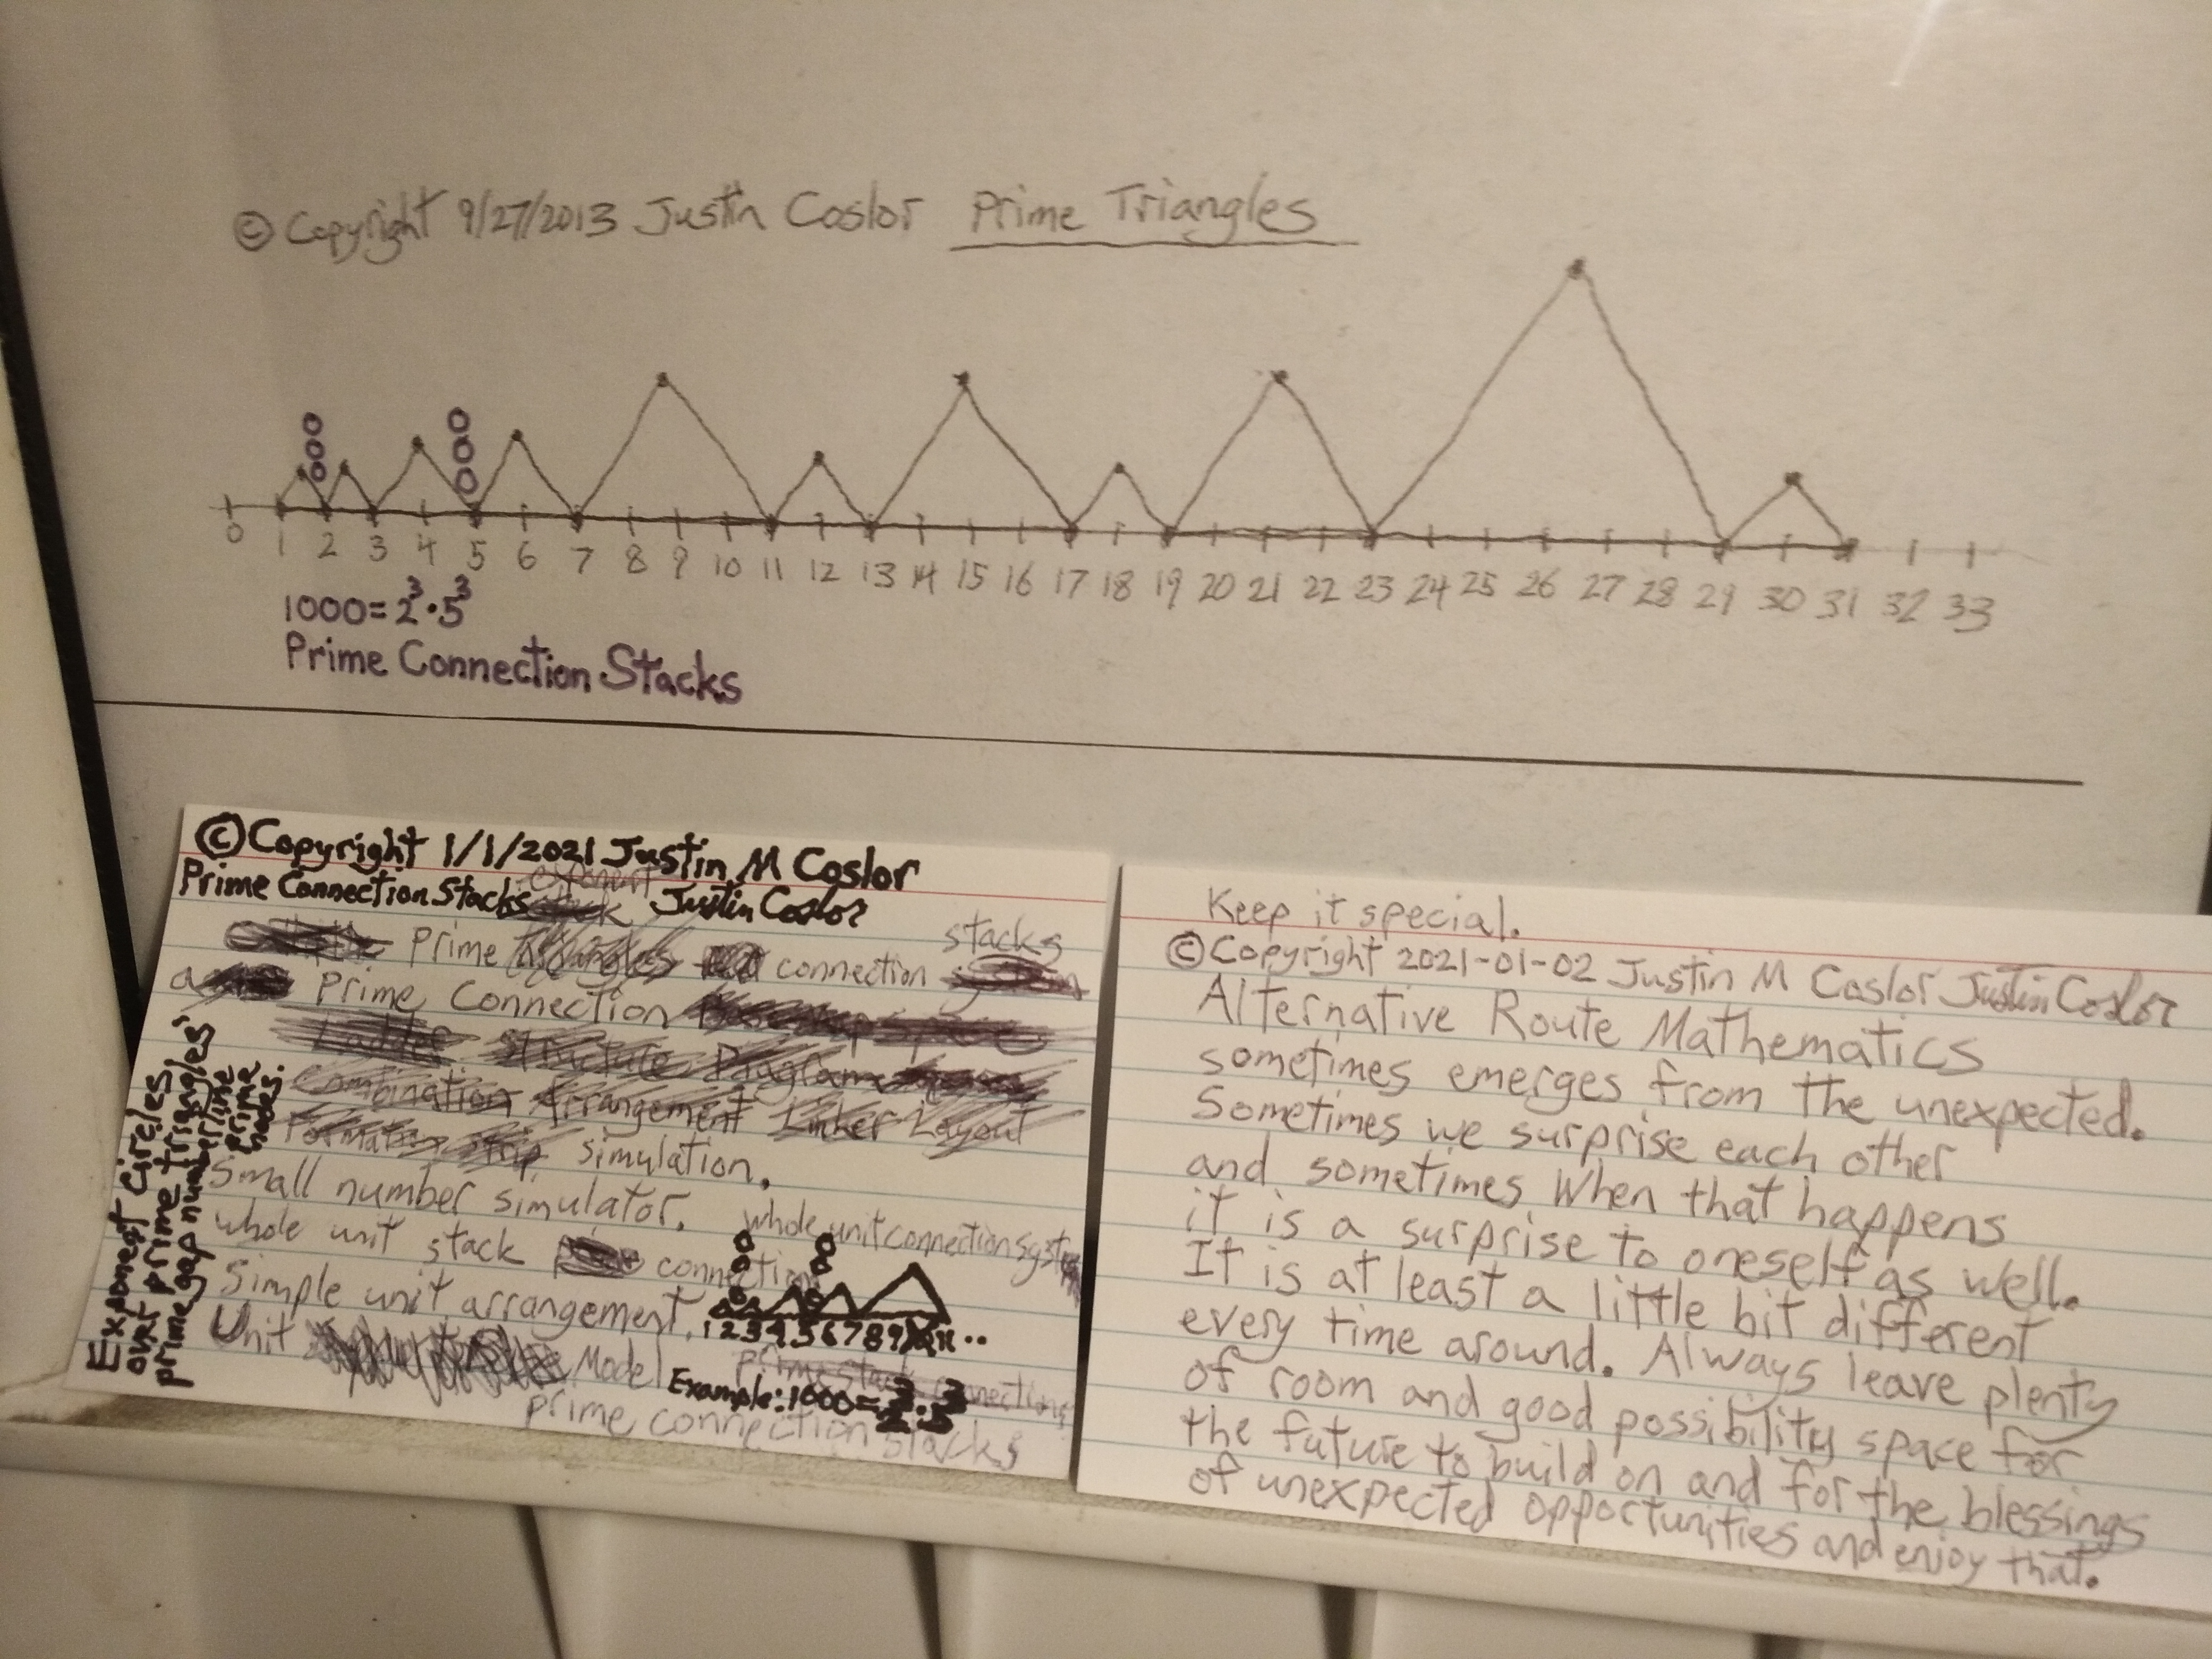 © Copyright 9/27/2013 Justin Coslor Prime Triangles
0 1 2 3 4 5 6 7 8 9 10 11 12 13 14 15 16 17 18 19 20 21 22 23 24 25 26 27 28 29 30 31 32 33
1000=2³·5³
Prime Connection Stacks
© Copyright 1/1/2021 Justin M Coslor
Prime Connection Stacks Justin Coslor
exponent
Prime Triangles connection stacks
a Prime Connection
Ladder Structure Diagram
Combination Arrangement Linker Layout
Formation strip simulation.
Small number simulator.
whole unit connection syst
whole unit stack connection
Simple unit arrangement.
1 2 3 4 5 6 7 8 9 11..
Unit Model
Example: 1000=2³·5³
prime connection stacks
Exponent circles
over prime triangles'
prime gap numberline
prime nodes.
Keep it special.
© Copyright 2021-01-02 Justin M Coslor Justin Coslor
Alternative Route Mathematics
sometimes emerges from the unexpected.
Sometimes we surprise each other
and sometimes when that happens
it is a surprise to oneself as well.
It is at least a little bit different
every time around. Always leave plenty
of room and good possibility space for
the future to build on and for the blessings
of unexpected opportunities and enjoy that.